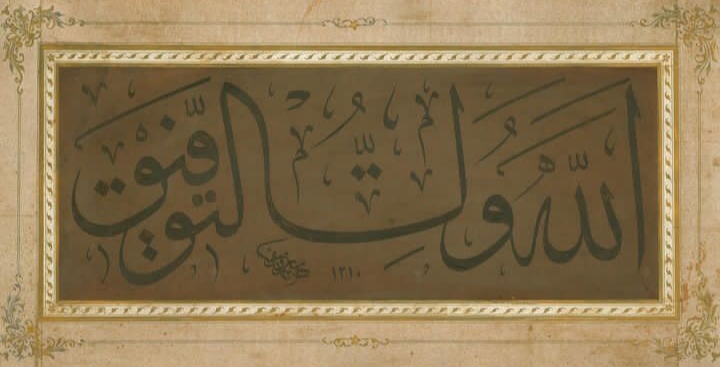 الله ولي التوفيق
١٣١٠